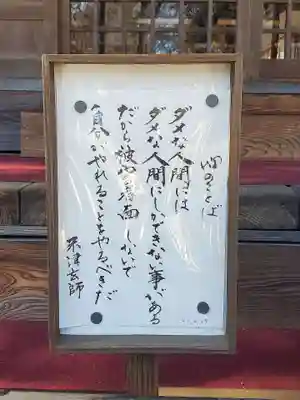 心のことば
ダメな人間には
ダメな人間にしかできない事がある
だから彼や場面しないで
自分がやれることをやるべきだ
米津玄師